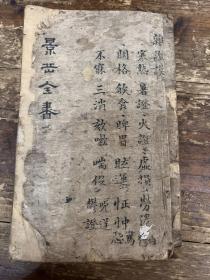 雜證謨
寒熱 暑證 火證 虛損 勞倦
關格 飲食 脾胃 眩運 怔忡驚恐
不寐 三消 欬嗽 喘促 呃逆 鬱證
景岳全書